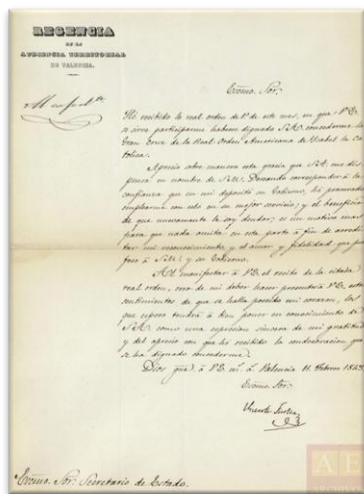 REGENCIA
DE LA
AUDIENCIA TERRITORIAL
DE VALENCIA.
Exmo. Sor.
He recibido la real orden de 1º de este mes, en que V.E.
se sirve participarme haberse dignado S.A. concederme la
Gran Cruz de la Real Orden Americana de Isabel la Ca
tolica.
Aprecio sobre manera esta gracia que S.A. me dis
pensa en nombre de S.M. Deseando corresponder á la
confianza que en mi depositó su Gobierno, he procurado
emplearme con celo en su mejor servicio; y el beneficio
de que nuevamente le soy deudor, es un motivo mas
para que nada omita en esta parte á fin de acredi
tar mi reconocimiento y el amor y fidelidad que pro
feso á S.M. y su Gobierno.
Al manifestar á V.E. el recibo de la citada
real orden, creo de mi deber hacer presente á V.E. estos
sentimientos de que se halla poseido mi corazon, los
que espero tendrá á bien poner en conocimiento de
S.A. como una espresion sincera de mi gratitud
y del aprecio con que he recibido la condecoracion que
se ha dignado concederme.
Dios gue. á V.E. m. a. Valencia 11 Febrero 1843
Exmo. Sor.
Vicente
Exmo. Sor. Secretario de Estado.
AE